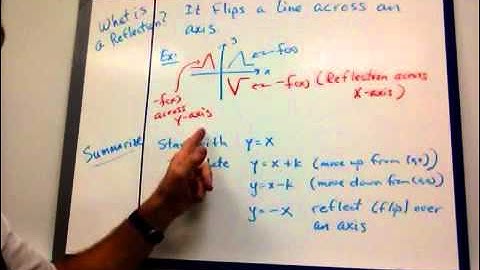 What is
a Reflection?
It flips a line across an
axis.
Ex:
y
x
f(x)
-f(x) (Reflection across
x-axis)
-f(x)
across
y-axis
Summarize
with y=x
y=x+k (move up from (0,0))
y=x-k (move down from (0,0))
y=-x reflect (flip) over
an axis